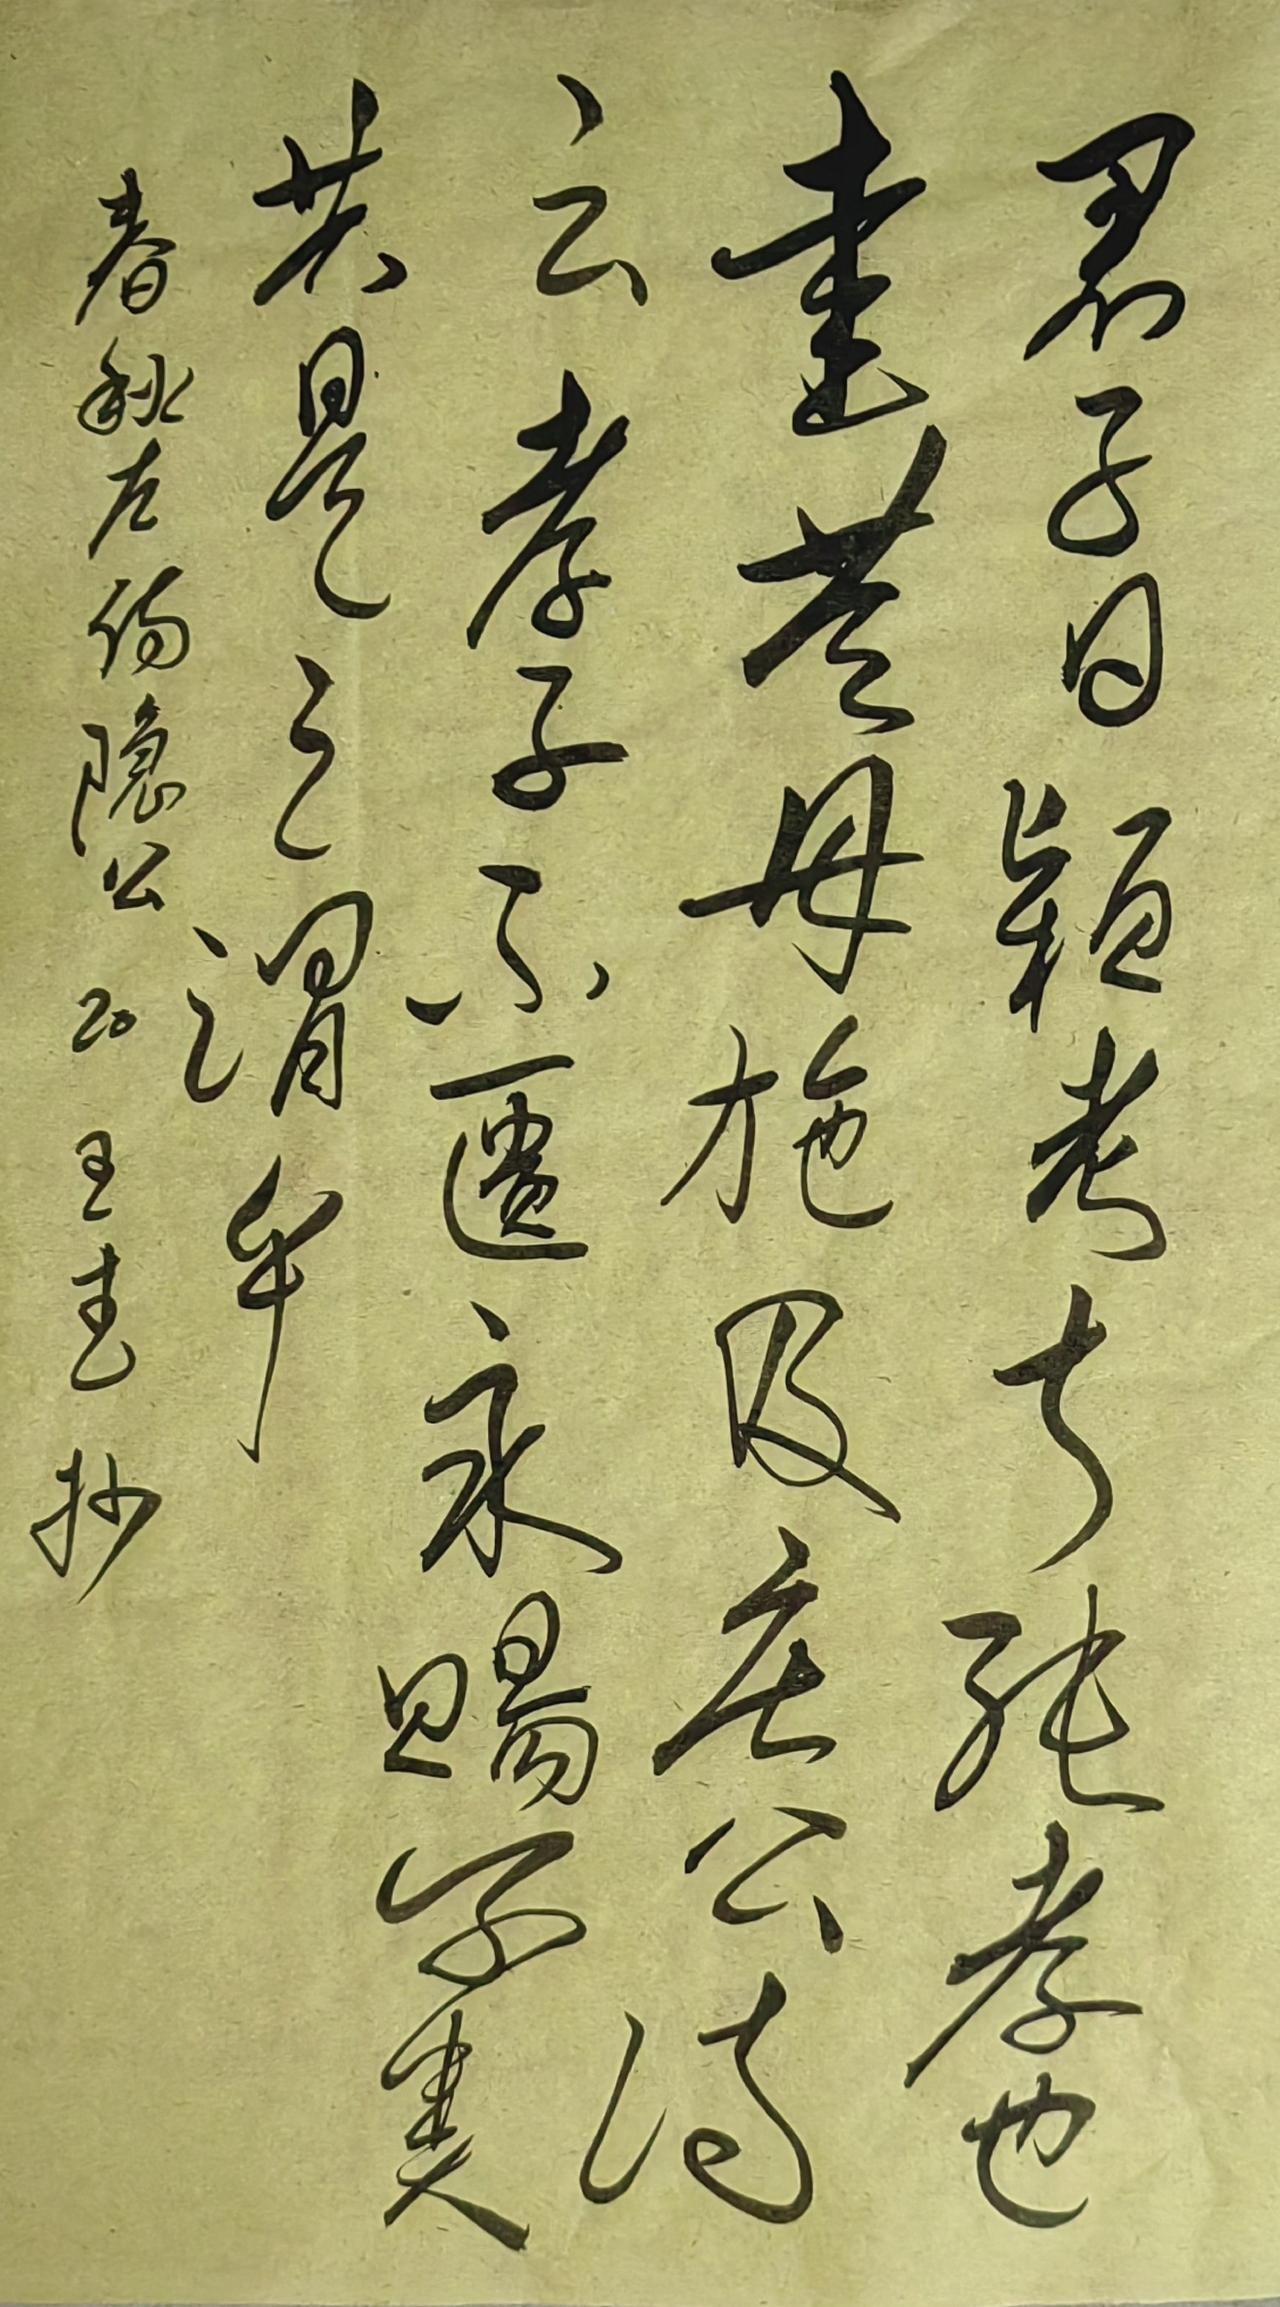 君子曰颖考叔纯孝也
爱其母施及庄公诗
云孝子不匮永赐尔类
其是之谓乎
春秋左传隐公 王 抄